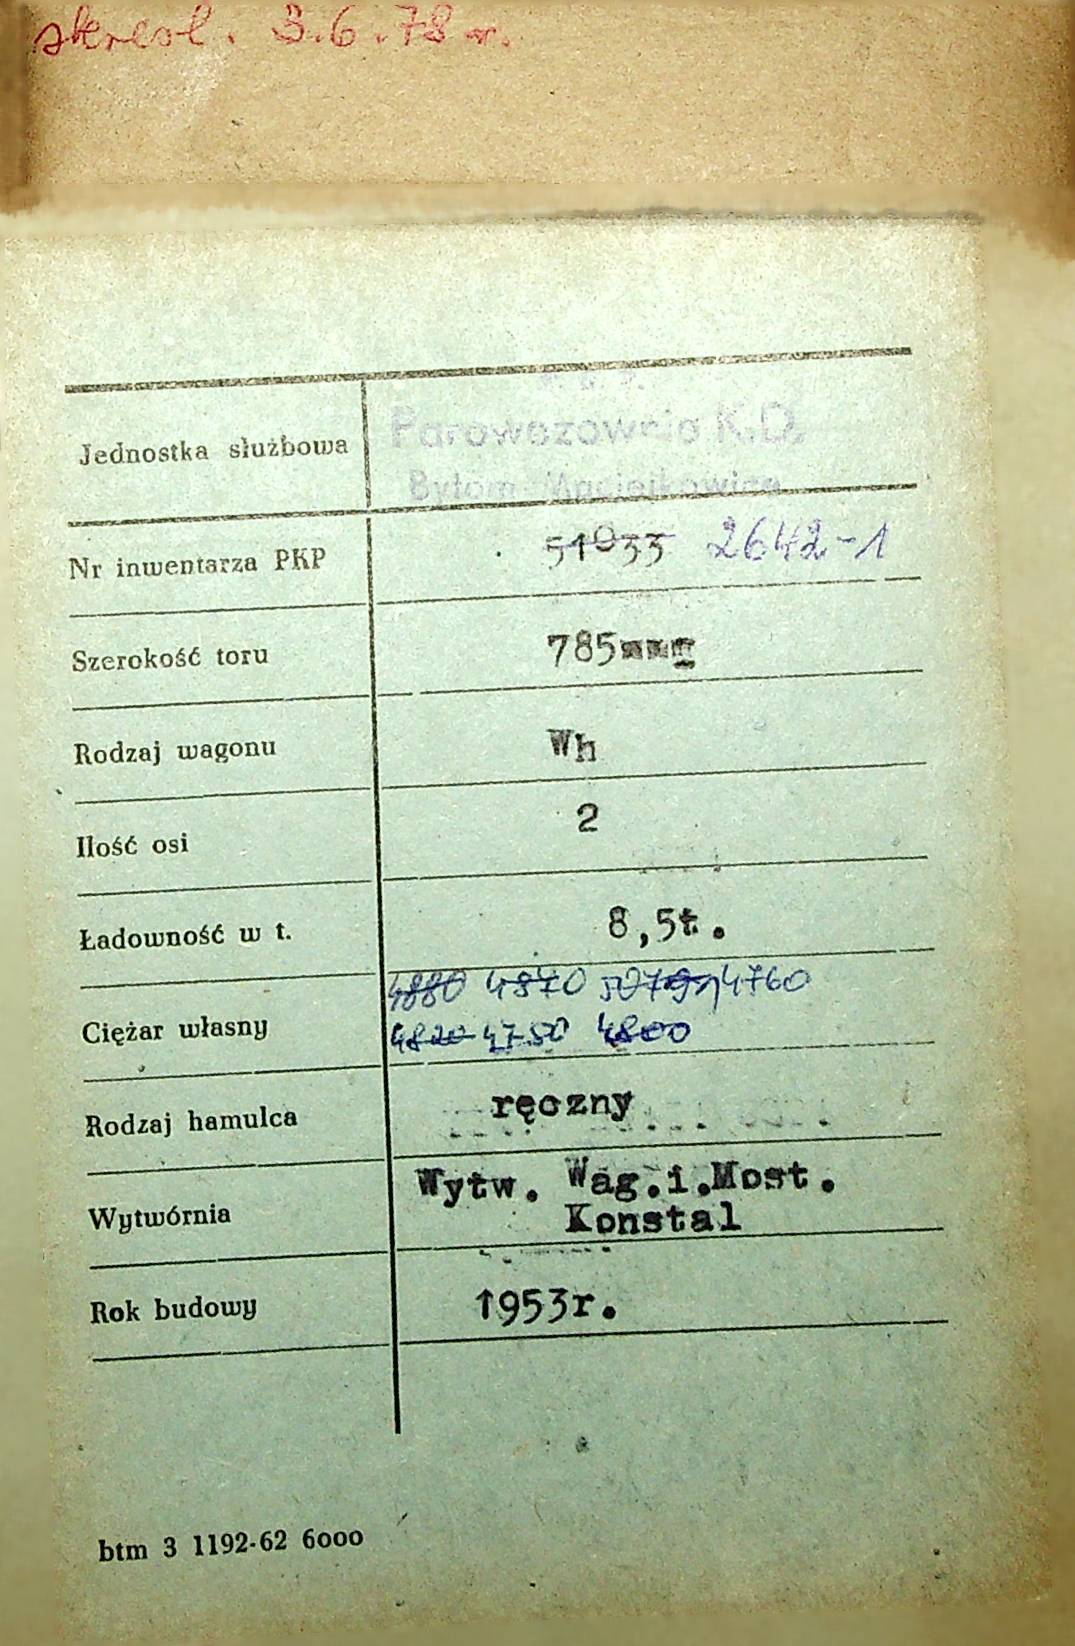 skreśl. 3.6.78 r.
Jednostka służbowa
Parowozownia K.D.
Bytom Maciejkowice
Nr inwentarza PKP 51033 2642-1
Szerokość toru 785
Rodzaj wagonu Wh
Ilość osi 2
Ładowność w t. 8,5t.
4880 4870 5079 4760
Ciężar własny 4820 4750 4800
Rodzaj hamulca ręczny
Wytwórnia Wytw. Wag.i.Most.
Konstal
Rok budowy 1953r.
btm 3 1192-62 6000